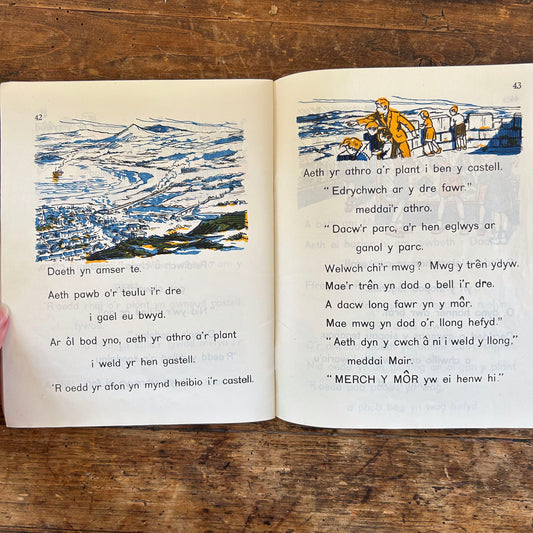 42
Daeth yn amser te.
Aeth pawb o'r teulu i'r dre
i gael eu bwyd.
Ar ôl bod yno, aeth yr athro a'r plant
i weld yr hen gastell.
'R oedd yr afon yn mynd heibio i'r castell.
43
Aeth yr athro a'r plant i ben y castell.
" Edrychwch ar y dre fawr."
meddai'r athro.
" Dacw'r parc, a'r hen eglwys ar
ganol y parc.
Welwch chi'r mwg? Mwg y trên ydyw.
Mae'r trên yn dod o bell i'r dre.
A dacw long fawr yn y môr.
Mae mwg yn dod o'r llong hefyd."
" Aeth dyn y cwch â ni i weld y llong,"
meddai Mair.
" MERCH Y MÔR yw ei henw hi."